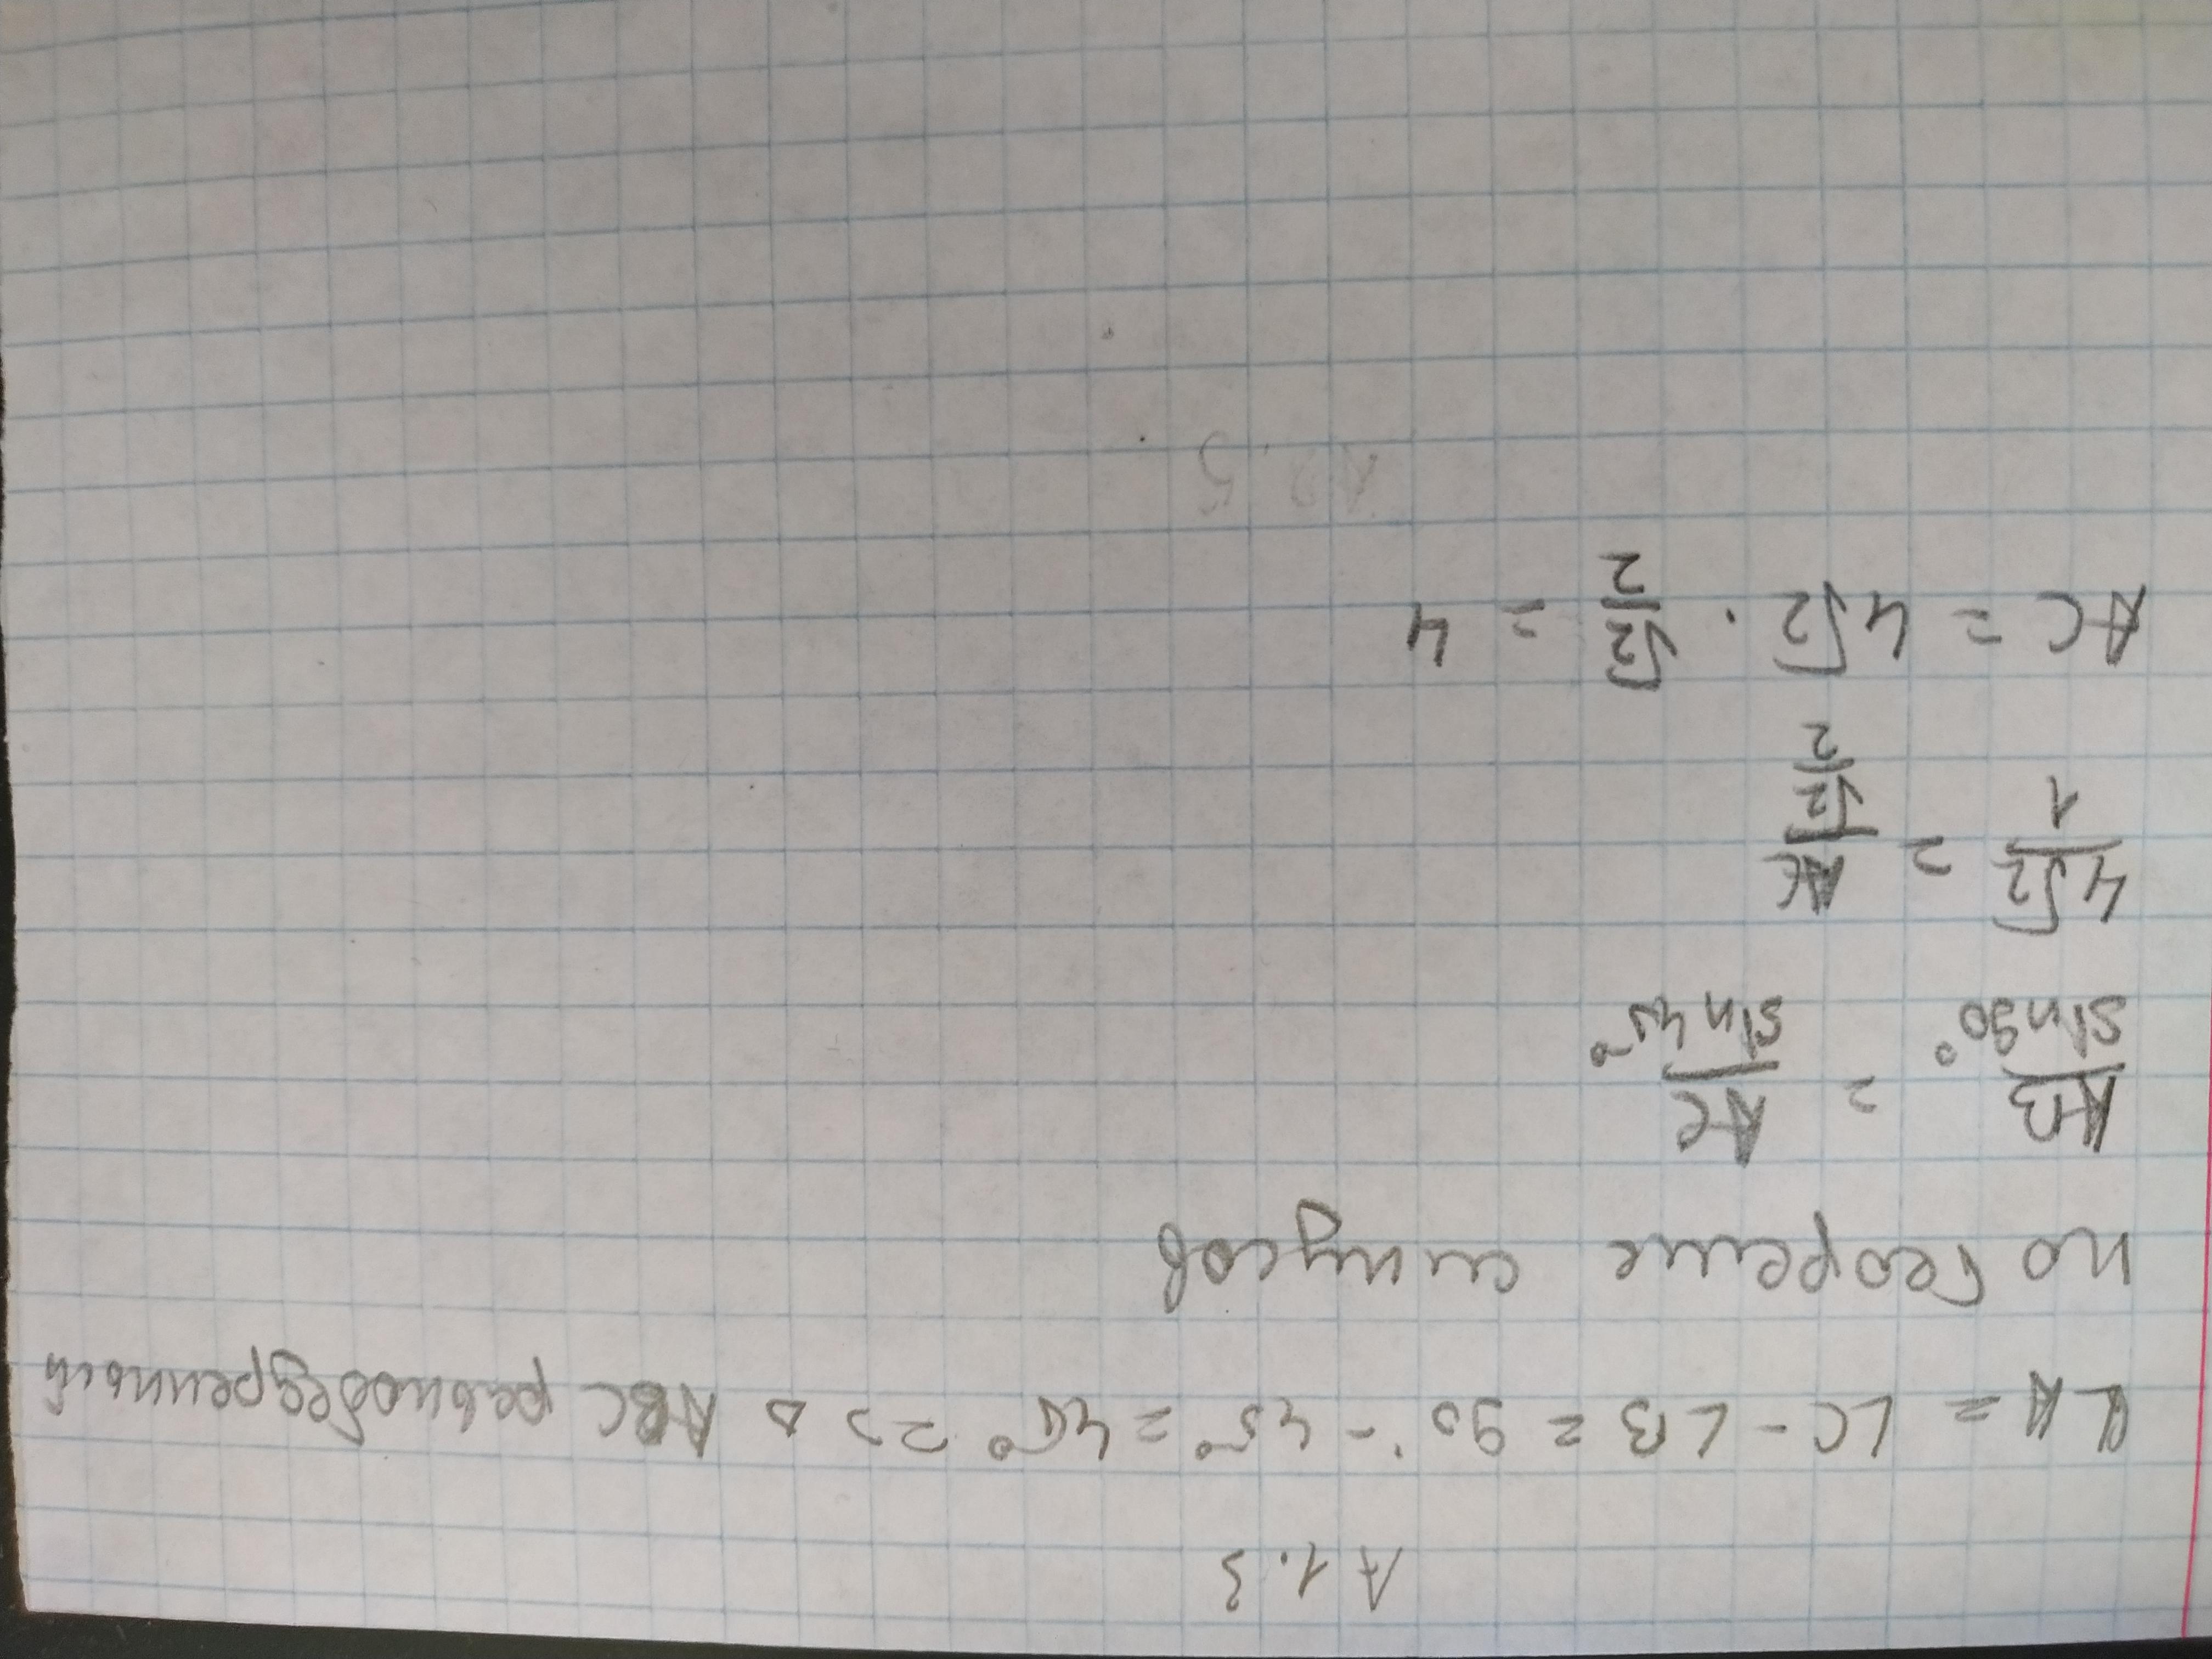 A 1.3
∠A = ∠C - ∠B = 90° - 45° = 45° => △ ABC равнобедренный
по теореме синусов
AB/sin90° = AC/sin45°
4√2/1 = AC/(√2/2)
AC = 4√2 · √2/2 = 4